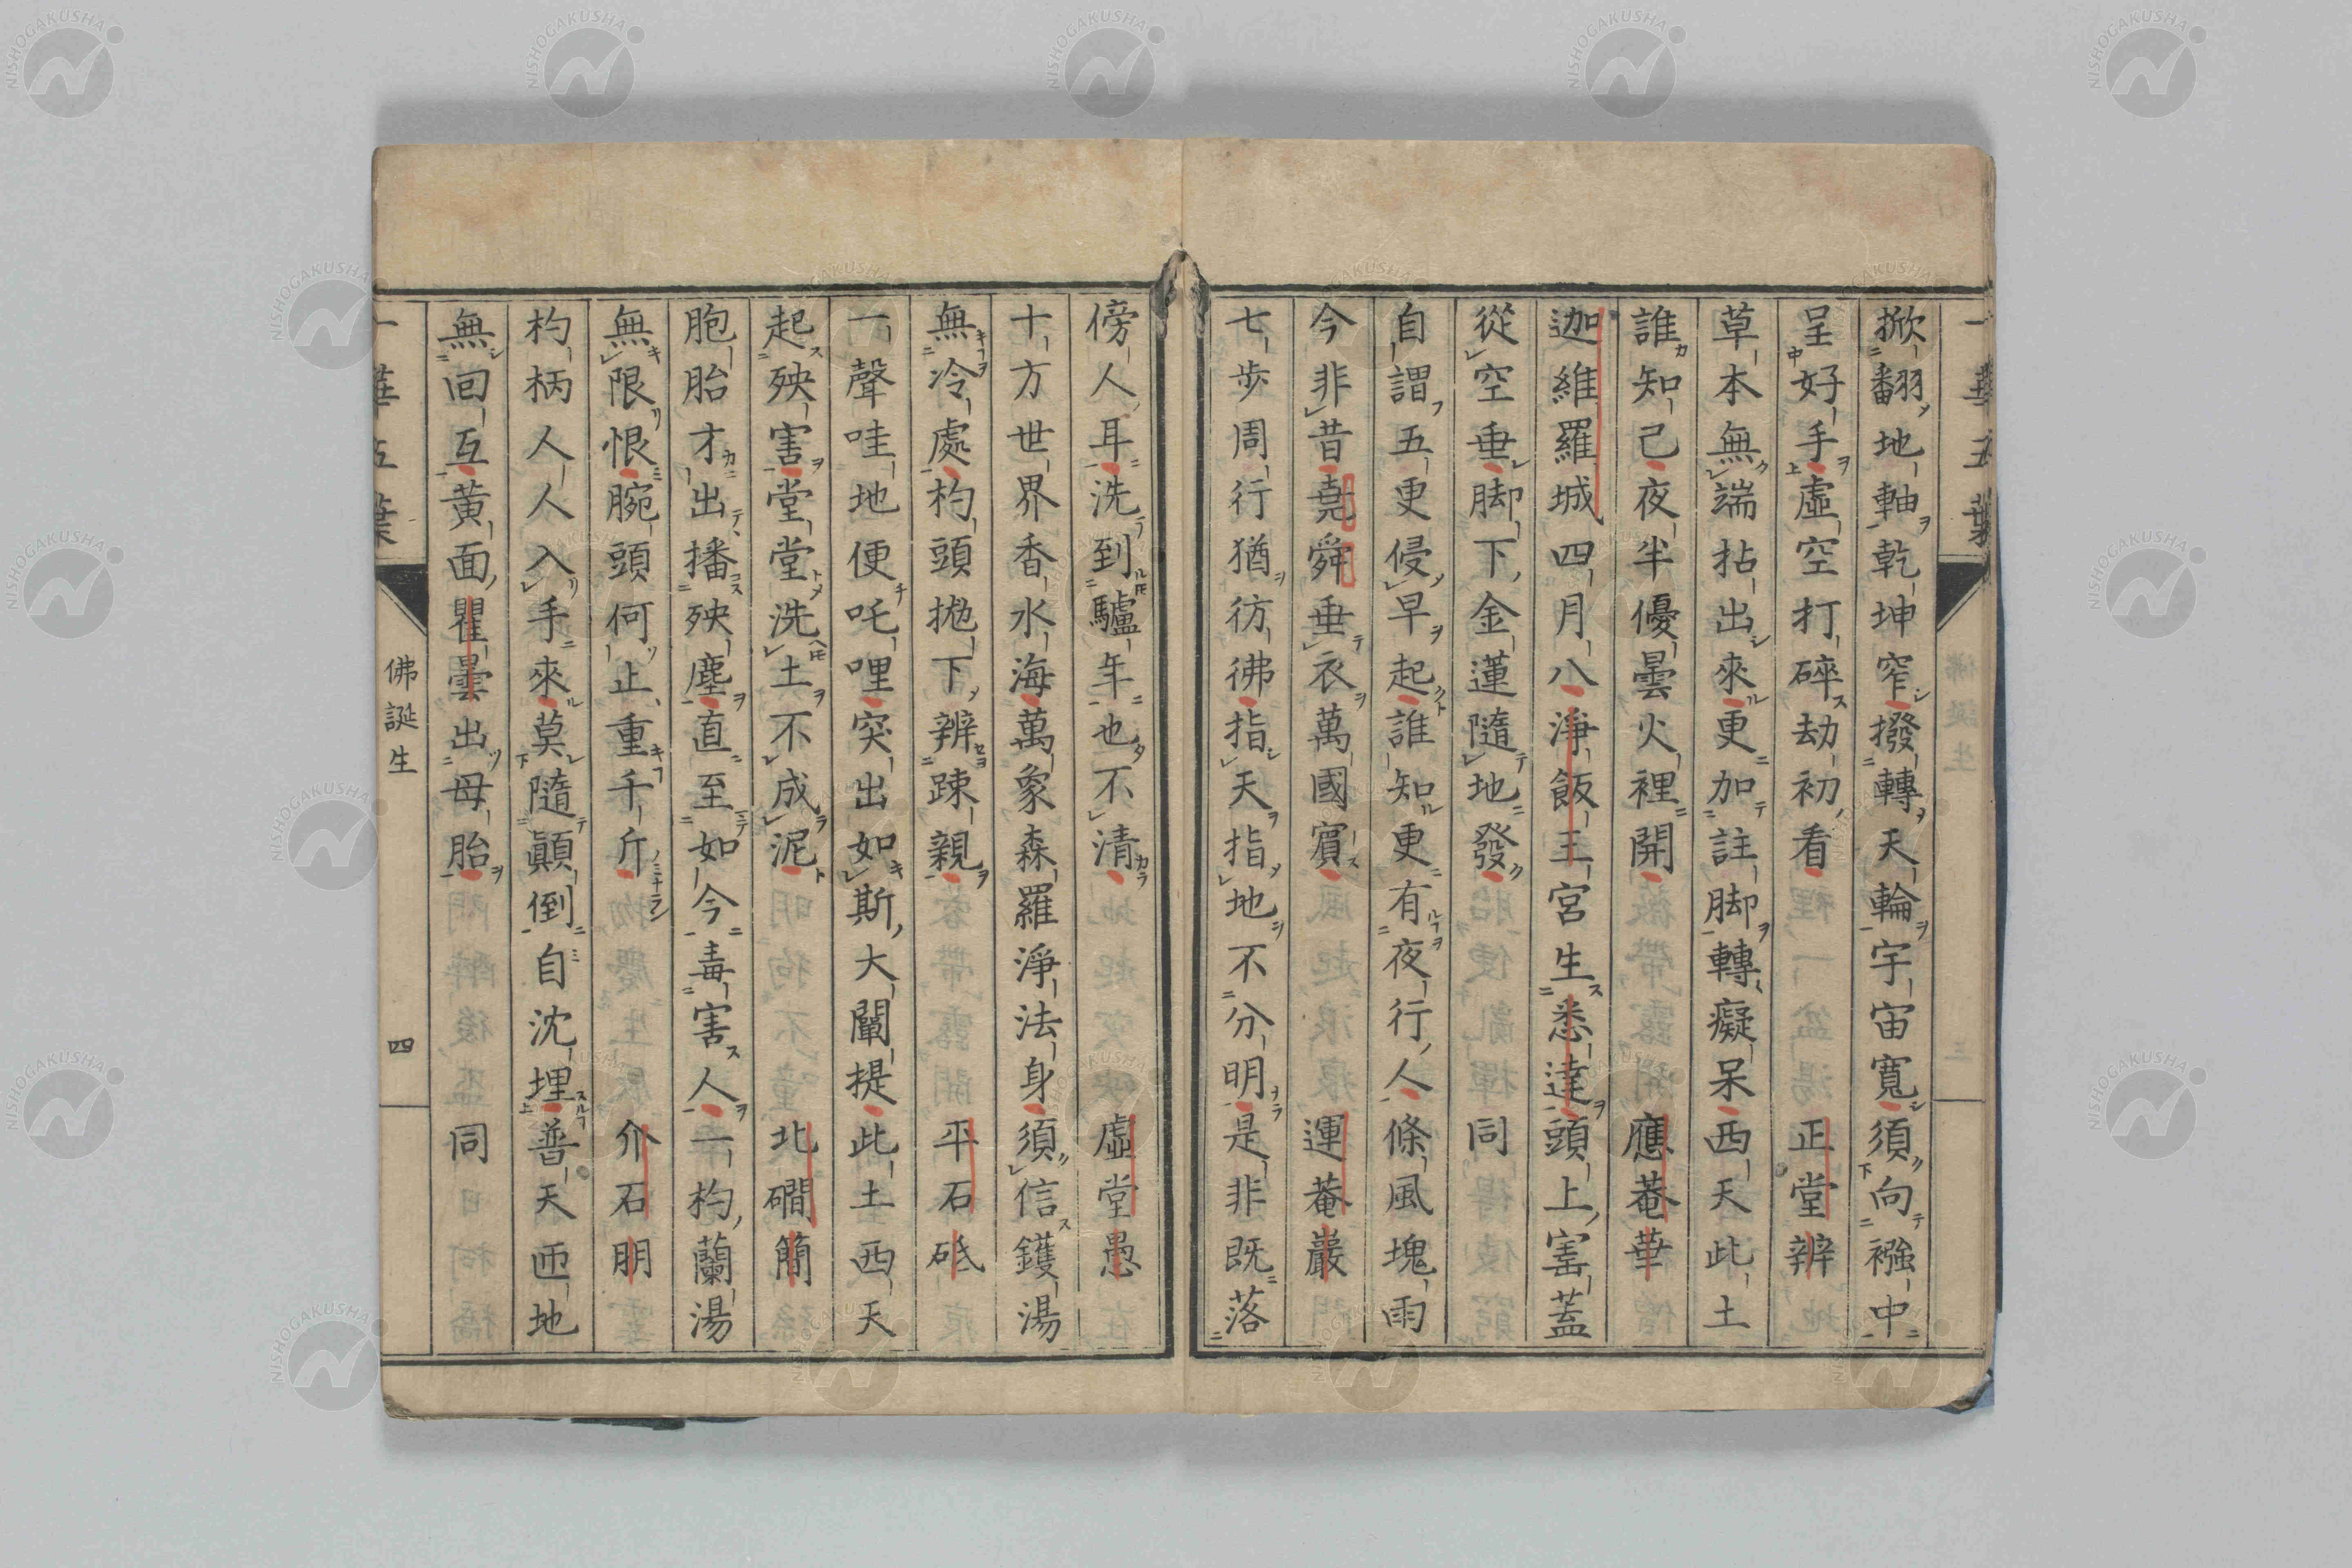 掀翻地軸乾坤窄撥轉天輪宇宙寬須向襁中
呈好手虛空打碎劫初看　正堂辨
草本無端拈出來更加註脚轉癡呆西天此土
誰知己夜半優曇火裡開　應菴華
迦維羅城四月八淨飯王宮生悉達頭上寶蓋
從空垂脚下金蓮隨地發　同
自謂五更侵早起誰知更有夜行人條風塊雨
今非昔堯舜垂衣萬國賓　運菴巖
七步周行猶彷彿指天指地不分明是非既落
傍人耳洗到驢年也不清　虛堂愚
十方世界香水海萬象森羅淨法身須信鑊湯
無冷處杓頭拋下辨踈親　平石砥
一聲哇地便吒哩突出如斯大闡提此土西天
起殃害堂堂洗土不成泥　北磵簡
胞胎才出播殃塵直至如今毒害人一杓蘭湯
無限恨腕頭何止重千斤　介石朋
杓柄人人入手來莫隨顚倒自沈埋普天匝地
無回互黃面瞿曇出母胎　同
一華五葉
佛誕生
四
NISHOGAKUSHA